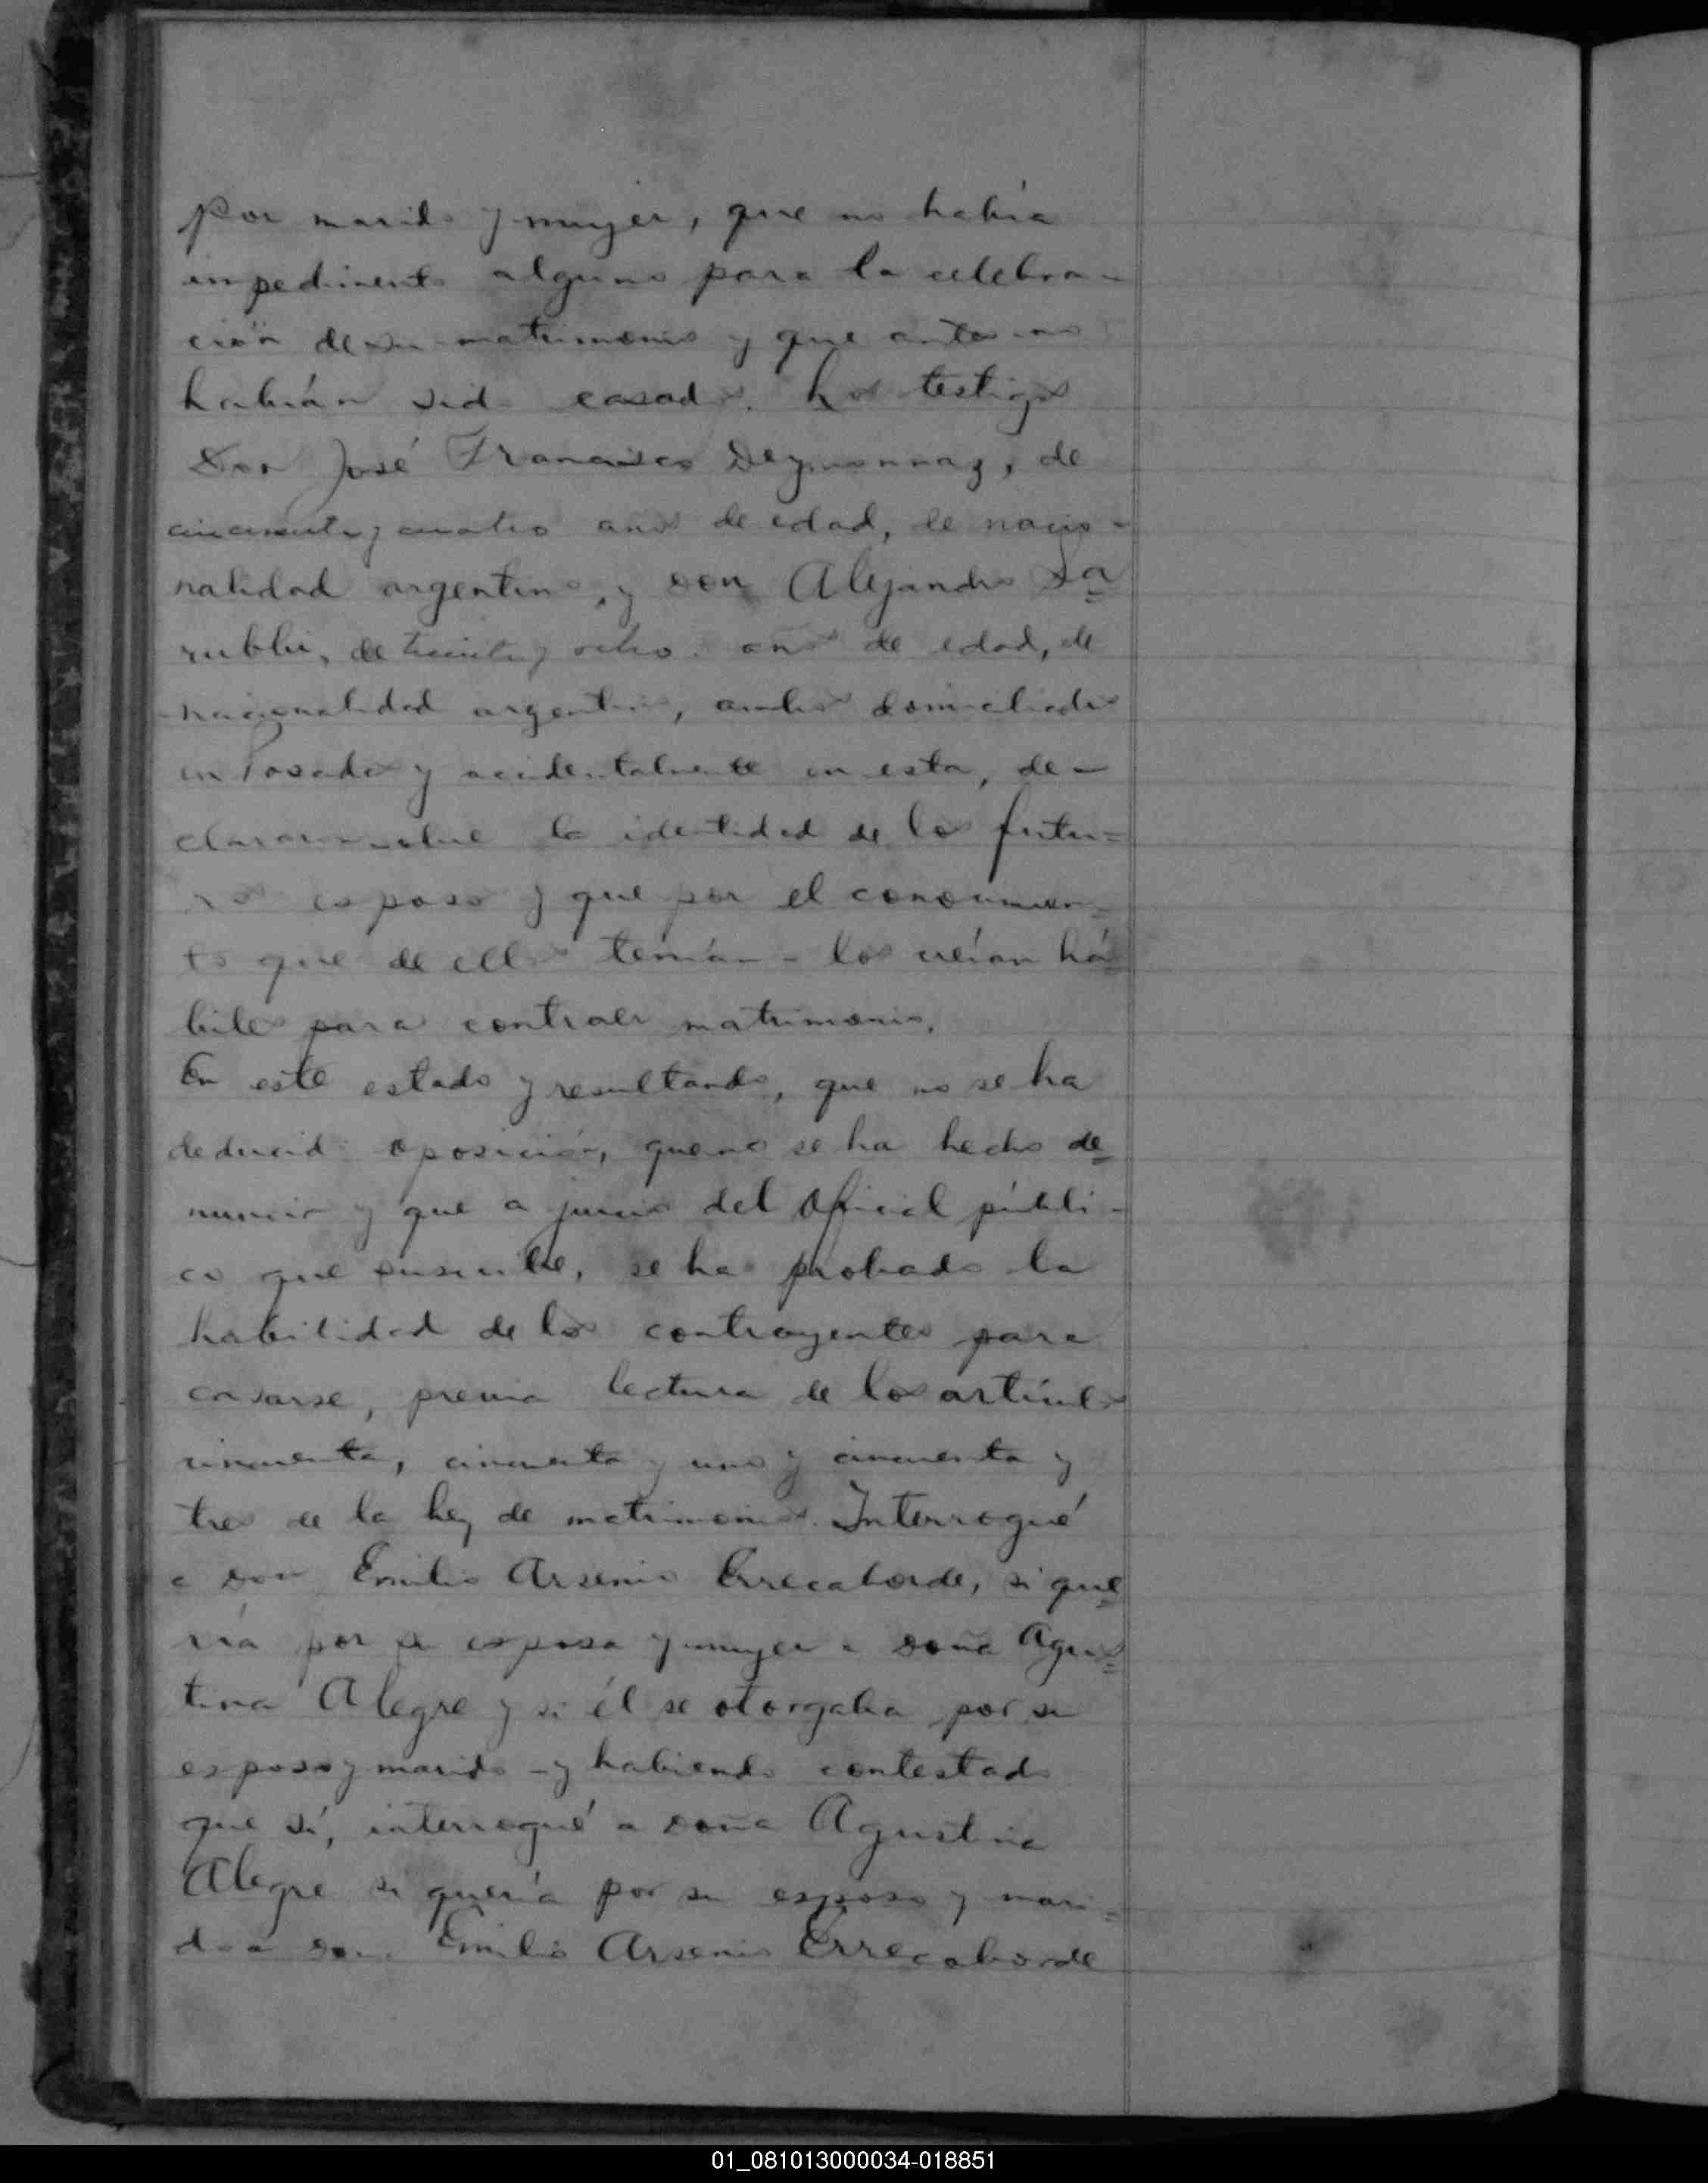 por marido y mujer, que no había
impedimento alguno para la celebra-
ción de su matrimonio y que antes no
habían sido casados. Los testigos
Don José Francisco Deymonnaz, de
cincuenta y cuatro años de edad, de nacio-
nalidad argentino, y don Alejandro Sa=
rubbi, de treinta y ocho años de edad, de
nacionalidad argentino, ambos domiciliados
en Posadas y accidentalmente en esta, de-
clararon sobre la identidad de los futu=
ros esposos y que por el conocimien=
to que de ellos tenían - los creían há=
biles para contraer matrimonio.
En este estado y resultando, que no se ha
deducido oposición, que no se ha hecho de=
nuncia y que a juicio del Oficial públi-
co que suscribe, se ha probado la
habilidad de los contrayentes para
casarse, previa lectura de los artículos
cincuenta, cincuenta y uno y cincuenta y
tres de la Ley de matrimonio. Interrogué
a don Emilio Arsenio Errecaborde, si que=
ría por su esposa y mujer a doña Agus=
tina Alegre y si él se otorgaba por su
esposo y marido - y habiendo contestado
que sí, interrogué a doña Agustina
Alegre si quería por su esposo y mari=
do a don Emilio Arsenio Errecaborde
01_081013000034-018851